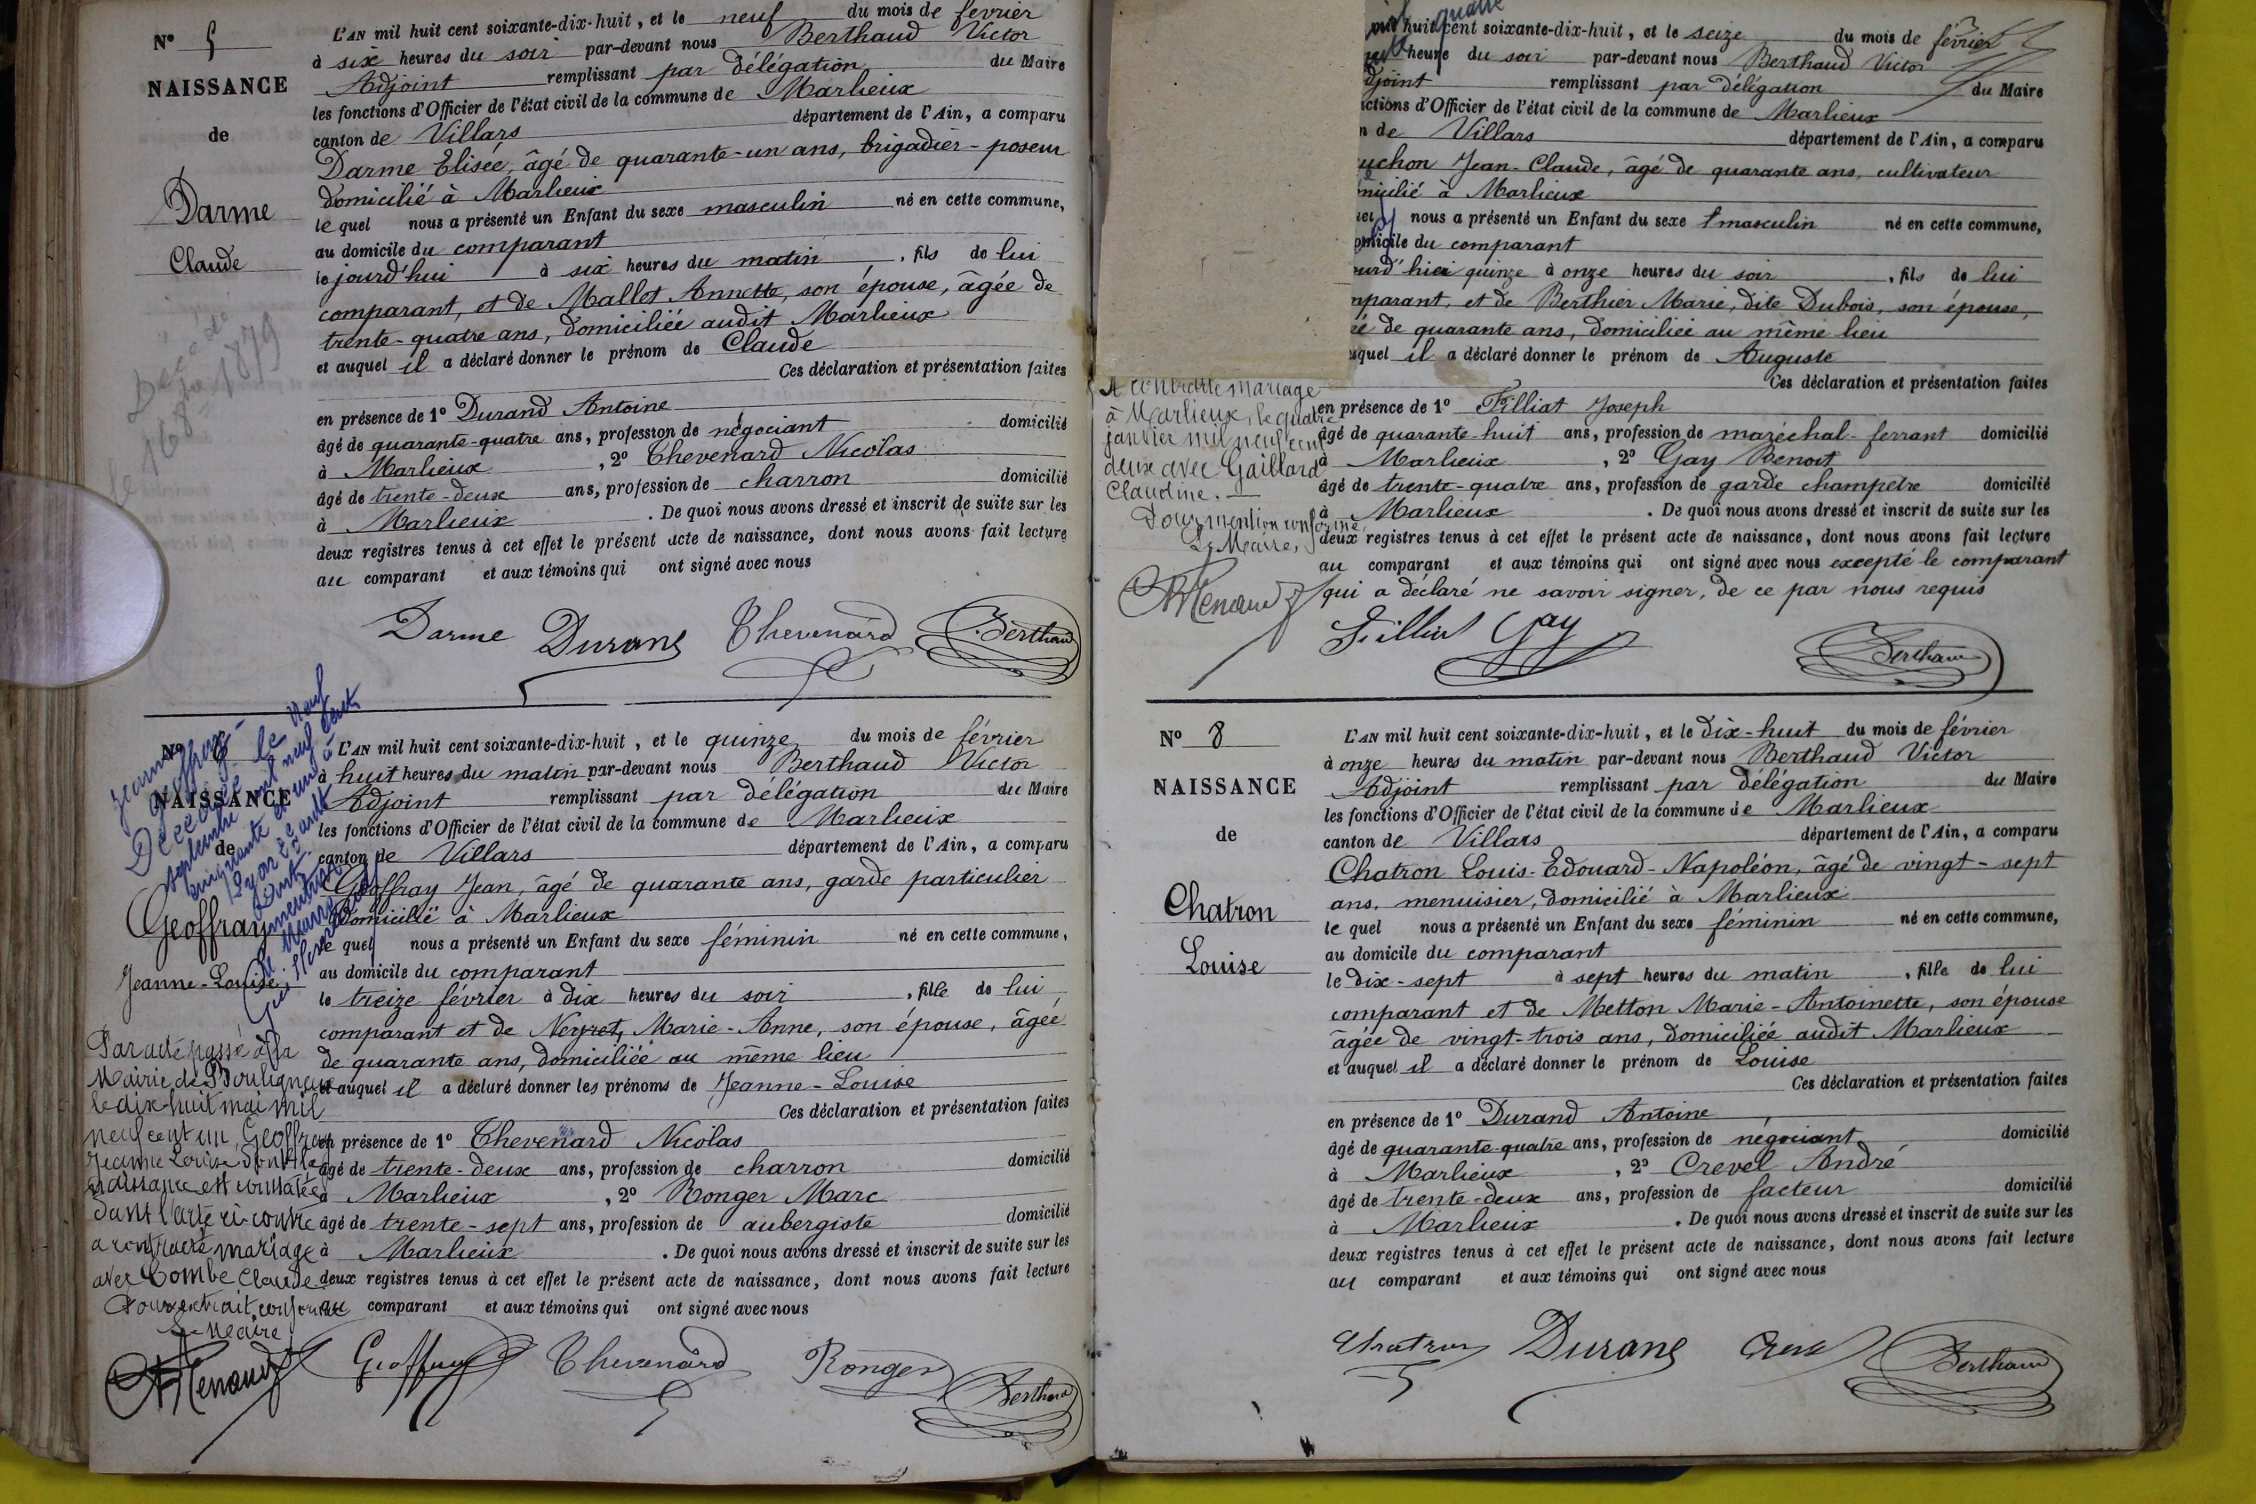 N° 5
NAISSANCE
de
Darme
Claude
Décédé
le 16 8bre 1879
L'AN mil huit cent soixante-dix-huit, et le neuf du mois de fevrier
à six heures du soir par-devant nous Berthaud Victor
Adjoint remplissant par délégation du Maire
les fonctions d'Officier de l'état civil de la commune de Marlieux
canton de Villars département de l'Ain, a comparu
Darme Elisée, âgé de quarante-un ans, brigadier-poseur
domicilié à Marlieux
le quel nous a présenté un Enfant du sexe masculin né en cette commune,
au domicile du comparant
le jourd'hui à six heures du matin, fils de lui
comparant, et de Mallet Annette, son épouse, âgée de
trente-quatre ans, domiciliée audit Marlieux
et auquel il a déclaré donner le prénom de Claude
Ces déclaration et présentation faites
en présence de 1° Durand Antoine
âgé de quarante-quatre ans, profession de négociant domicilié
à Marlieux, 2° Thevenard Nicolas
âgé de trente-deux ans, profession de charron domicilié
à Marlieux. De quoi nous avons dressé et inscrit de suite sur les
deux registres tenus à cet effet le présent acte de naissance, dont nous avons fait lecture
au comparant et aux témoins qui ont signé avec nous
Darme Durand Thevenard Berthaud
N° 6
NAISSANCE
de
Geoffray
Jeanne-Louise
Jeanne
Geoffray
Décédée le neuf
septembre mil neuf cent
cinquante et un à
Par acte passé à la
Mairie de Bouligneux
le dix-huit mai mil
neuf cent un, Geoffray
Jeanne Louise dont la
naissance est constatée
dans l'acte ci-contre
a contracté mariage
avec Combe Claude
Pour extrait conforme
Le Maire
L'AN mil huit cent soixante-dix-huit, et le quinze du mois de février
à huit heures du matin par-devant nous Berthaud Victor
Adjoint remplissant par délégation du Maire
les fonctions d'Officier de l'état civil de la commune de Marlieux
canton de Villars département de l'Ain, a comparu
Geoffray Jean, âgé de quarante ans, garde particulier
domicilié à Marlieux
le quel nous a présenté un Enfant du sexe féminin né en cette commune,
au domicile du comparant
le treize février à dix heures du soir, fille de lui
comparant et de Neyret, Marie-Anne, son épouse, âgée
de quarante ans, domiciliée au même lieu
et auquel il a déclaré donner les prénoms de Jeanne-Louise
Ces déclaration et présentation faites
en présence de 1° Thevenard Nicolas
âgé de trente-deux ans, profession de charron domicilié
à Marlieux, 2° Ronger Marc
âgé de trente-sept ans, profession de aubergiste domicilié
à Marlieux. De quoi nous avons dressé et inscrit de suite sur les
deux registres tenus à cet effet le présent acte de naissance, dont nous avons fait lecture
au comparant et aux témoins qui ont signé avec nous
Geoffray Thevenard Ronger Berthaud
mil huit cent soixante-dix-huit, et le seize du mois de février
heure du soir par-devant nous Berthaud Victor
djoint remplissant par délégation du Maire
nctions d'Officier de l'état civil de la commune de Marlieux
n de Villars département de l'Ain, a comparu
uchon Jean-Claude, âgé de quarante ans, cultivateur
micilié à Marlieux
uel nous a présenté un Enfant du sexe masculin né en cette commune,
omicile du comparant
ourd'hier quinze à onze heures du soir, fils de lui
mparant, et de Berthier Marie, dite Dubois, son épouse,
de quarante ans, domiciliée au même lieu
uquel il a déclaré donner le prénom de Auguste
Ces déclaration et présentation faites
A contracté mariage
à Marlieux, le quatre
janvier mil neuf cent
deux avec Gaillard
Claudine.
Pour mention conforme,
Le Maire,
en présence de 1° Filliat Joseph
âgé de quarante-huit ans, profession de maréchal-ferrant domicilié
à Marlieux, 2° Gay Benoit
âgé de trente-quatre ans, profession de garde champêtre domicilié
à Marlieux. De quoi nous avons dressé et inscrit de suite sur les
deux registres tenus à cet effet le présent acte de naissance, dont nous avons fait lecture
au comparant et aux témoins qui ont signé avec nous excepté le comparant
qui a déclaré ne savoir signer, de ce par nous requis
Filliat Gay Berthaud
N° 8
NAISSANCE
de
Chatron
Louise
L'AN mil huit cent soixante-dix-huit, et le dix-huit du mois de février
à onze heures du matin par-devant nous Berthaud Victor
Adjoint remplissant par délégation du Maire
les fonctions d'Officier de l'état civil de la commune de Marlieux
canton de Villars département de l'Ain, a comparu
Chatron Louis-Edouard-Napoléon, âgé de vingt-sept
ans, menuisier, domicilié à Marlieux
le quel nous a présenté un Enfant du sexe féminin né en cette commune,
au domicile du comparant
le dix-sept à sept heures du matin, fille de lui
comparant et de Metton Marie-Antoinette, son épouse
âgée de vingt-trois ans, domiciliée audit Marlieux
et auquel il a déclaré donner le prénom de Louise
Ces déclaration et présentation faites
en présence de 1° Durand Antoine
âgé de quarante-quatre ans, profession de négociant domicilié
à Marlieux, 2° Crevel André
âgé de trente-deux ans, profession de facteur domicilié
à Marlieux. De quoi nous avons dressé et inscrit de suite sur les
deux registres tenus à cet effet le présent acte de naissance, dont nous avons fait lecture
au comparant et aux témoins qui ont signé avec nous
Chatron Durand Crevel Berthaud